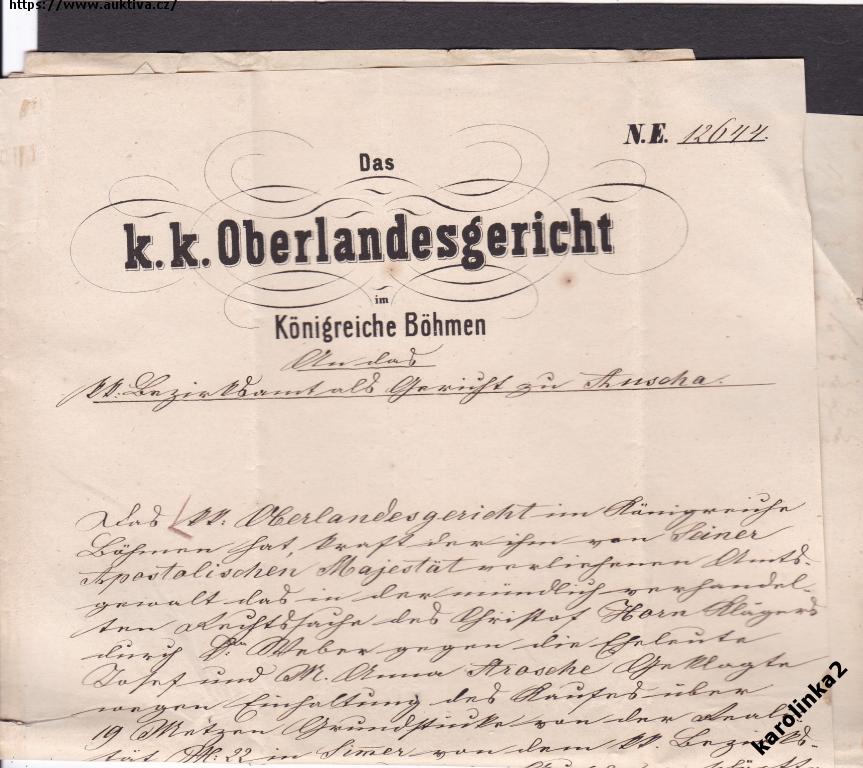 https://www.auktiva.cz/
N.E. 12644.
Das
k. k. Oberlandesgericht
im
Königreiche Böhmen
An das
kk: Bezirksamt als Gericht zu Auscha.
Das kk: Oberlandesgericht im Königreiche
Böhmen hat, kraft der ihm von Seiner
Apostolischen Majestät verliehenen Amts-
gewalt das in der mündlich verhandel-
ten Rechtssache des Christof Horn Klägers
durch Dr. Weber gegen die Eheleute
Josef und M. Anna Geklagte
wegen Einhaltung des Kaufes über
19 Metzen Grundstücke von der Reali-
tät N: 22 in von dem kk. Bezirks-
karolinka2